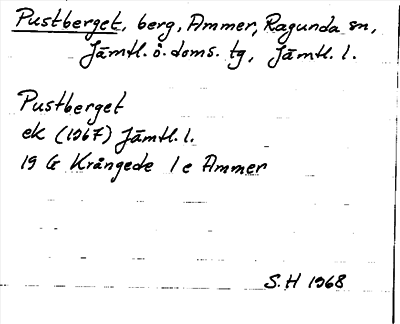 Pustberget, berg, Ammer, Ragunda sn,
Jämtl. ö. doms. tg, Jämtl. l.
Pustberget
ek (1967) Jämtl. l.
19 G Krångede 1 e Ammer
S.H 1968